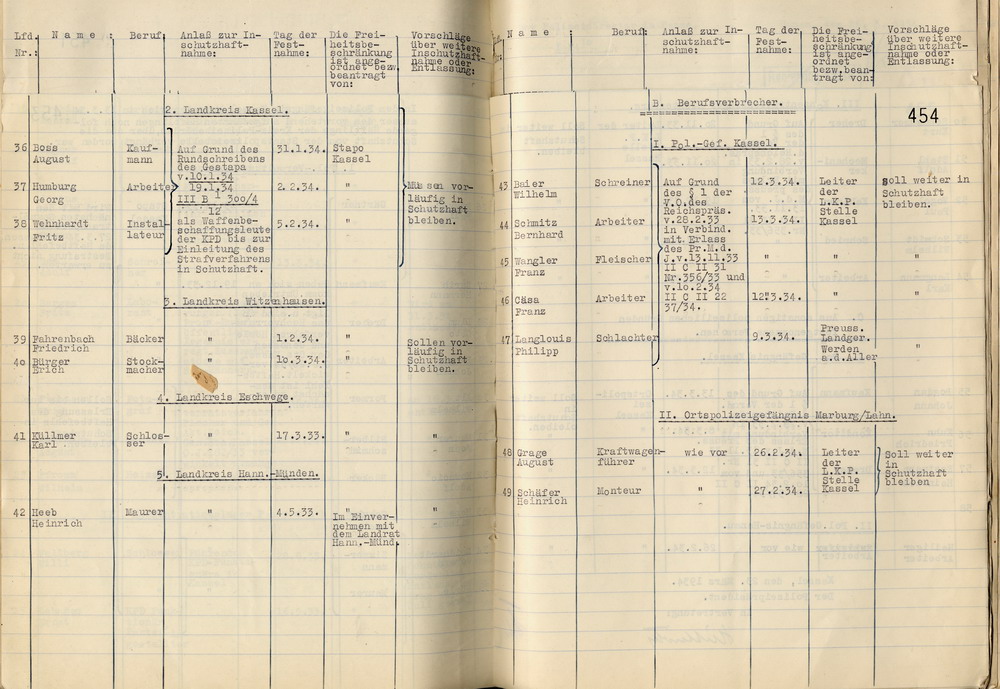 Lfd. Nr.: Name: Beruf: Anlaß zur In- Tag der Die Frei- Vorschläge
schutzhaft- Fest- heitsbe- über weitere
nahme: nahme: schränkung Inschutzhaft-
ist ange- nahme oder
ordnet bezw. Entlassung:
beantragt
von:
2. Landkreis Kassel.
36 Boss Kauf- Auf Grund des 31.1.34. Stapo
August mann Rundschreibens Kassel
des Gestapa
v.10.1.34
37 Humburg Arbeiter 19.1.34 2.2.34. " Müssen vor-
Georg III B - 300/4 läufig in
12 Schutzhaft
38 Wehnhardt Instal- als Waffenbe- 5.2.34. " bleiben.
Fritz lateur schaffungsleute
der KPD bis zur
Einleitung des
Strafverfahrens
in Schutzhaft.
3. Landkreis Witzenhausen.
39 Fahrenbach Bäcker " 1.2.34. " Sollen vor-
Friedrich läufig in
4o Bürger Stock- " 1o.3.34. " Schutzhaft
Erich macher bleiben.
4. Landkreis Eschwege.
41 Küllmer Schlos- " 17.3.33. " "
Karl ser
5. Landkreis Hann.-Münden.
42 Heeb Maurer " 4.5.33. Im Einver- "
Heinrich nehmen mit
dem Landrat
Hann.-Münd.
Name: Beruf: Anlaß zur In- Tag der Die Frei- Vorschläge
schutzhaft- Fest- heitsbe- über weitere
nahme: nahme: schränkung Inschutzhaft-
ist ange- nahme oder
ordnet Entlassung:
bezw.bean-
tragt von:
B. Berufsverbrecher.
454
I. Pol.-Gef. Kassel.
43 Baier Schreiner Auf Grund 12.3.34. Leiter Soll weiter in
Wilhelm des § 1 der der Schutzhaft
V.O.des L.K.P. bleiben.
Reichspräs. Stelle
44 Schmitz Arbeiter v.28.2.33 13.3.34. Kassel
Bernhard in Verbind.
mit Erlass
des Pr.M.d.
45 Wangler Fleischer J.v.13.11.33 " " "
Franz II C II 31
Nr.356/33 und
v.1o.2.34
46 Cäsa Arbeiter II C II 22 12.3.34. " "
Franz 37/34.
47 Langlouis Schlachter 9.3.34. Preuss. "
Philipp Landger.
Werden
a.d.Aller
II. Ortspolizeigefängnis Marburg/Lahn.
48 Grage Kraftwagen- wie vor 26.2.34. Leiter Soll weiter
August führer der in
L.K.P. Schutzhaft
49 Schäfer Monteur " 27.2.34. Stelle bleiben
Heinrich Kassel